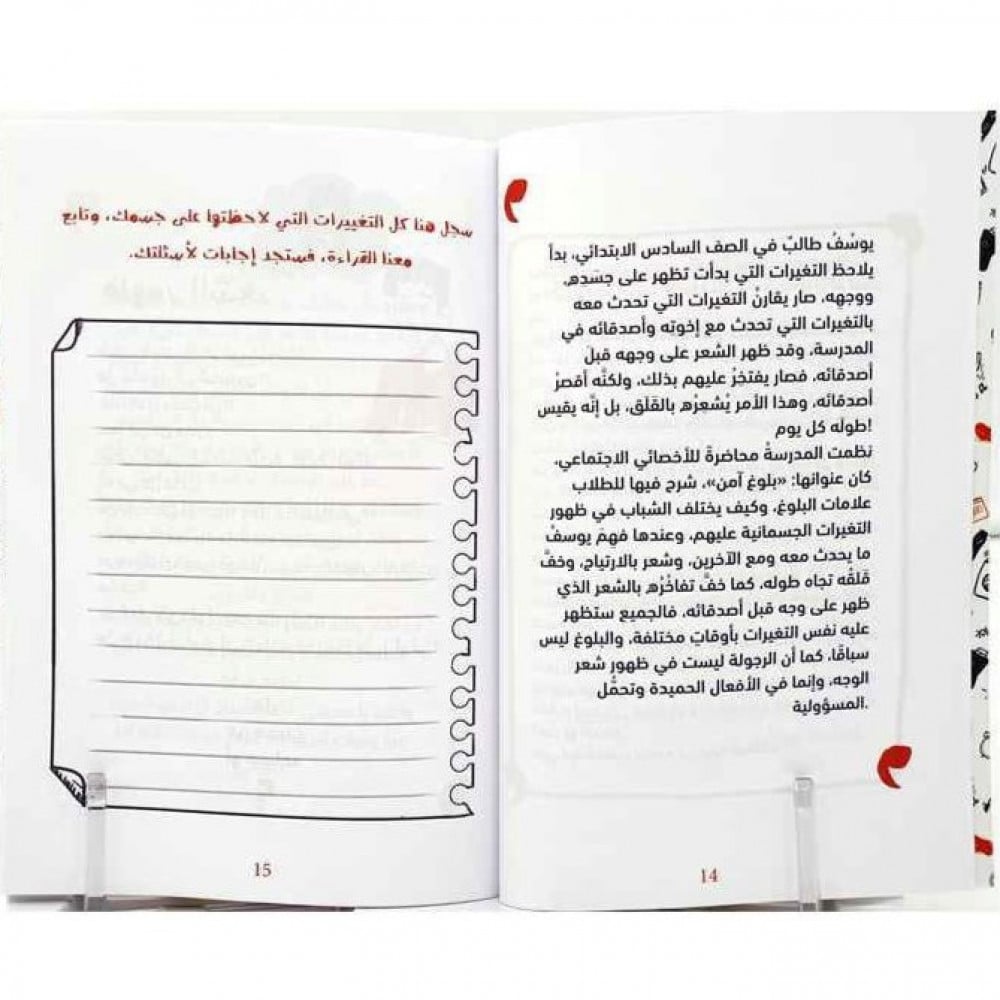 يوسُفُ طالبٌ في الصف السادس الابتدائي، بدأ
يلاحظ التغيرات التي بدأت تظهر على جسَدِه،
ووجهه، صار يقارنُ التغيرات التي تحدث معه
بالتغيرات التي تحدث مع إخوته وأصدقائه في
المدرسة، وقد ظهر الشعر على وجهه قبلَ
أصدقائه، فصار يفتخِرُ عليهم بذلك، ولكنَّه أقصرُ
أصدقائه، وهذا الأمر يُشعرُه بالقلَق، بل إنَّه يقيس
طولَه كل يوم!
نظمت المدرسةُ محاضرةً للأخصائي الاجتماعي،
كان عنوانها: «بلوغ آمن»، شرح فيها للطلاب
علامات البلوغ، وكيف يختلف الشباب في ظهور
التغيرات الجسمانية عليهم، وعندها فهمَ يوسفُ
ما يحدث معه ومع الآخرين، وشعر بالارتياح، وخفَّ
قلقُه تجاه طوله، كما خفَّ تفاخُرُه بالشعر الذي
ظهر على وجه قبل أصدقائه، فالجميع ستظهر
عليه نفس التغيرات بأوقاتٍ مختلفة، والبلوغ ليس
سباقًا، كما أن الرجولة ليست في ظهور شعر
الوجه، وإنما في الأفعال الحميدة وتحمُّل
المسؤولية.
14
سجل هنا كل التغييرات التي لاحظتها على جسمك، وتابع
معنا القراءة، فستجد إجابات لأسئلتك.
15